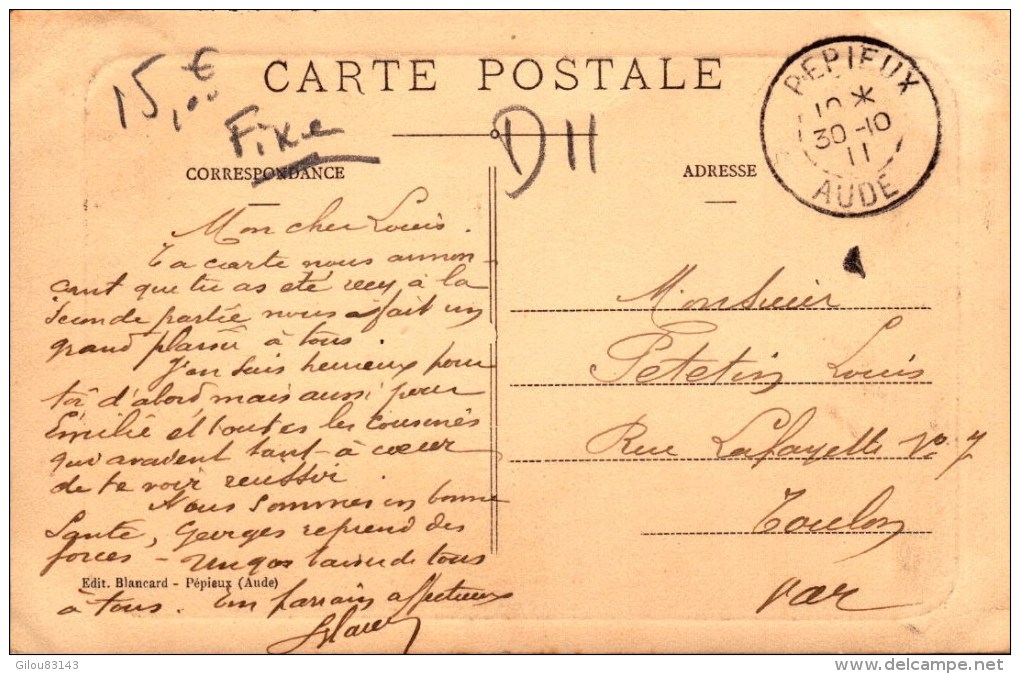 15,00 €
Fixe
CARTE POSTALE
D 11
PEPIEUX
30-10
11
AUDE
CORRESPONDANCE
ADRESSE
Mon cher Louis.
Ta carte nous annon-
cant que tu as eté reçu à la
seconde partie nous a fait un
grand plaisir à tous.
J'en suis heureux pour
toi d'abord mais aussi pour
Emilie et toutes les cousines
qui avaient tant à coeur
de te voir reussir.
Nous sommes en bonne
Santé, Georges reprend des
forces - de tous
à tous. parrain affectueux
Monsieur
Petetin Louis
Rue Lafayette No 7
Toulon
Var
Edit. Blancard - Pépieux (Aude)
Gilou83143
www.delcampe.net